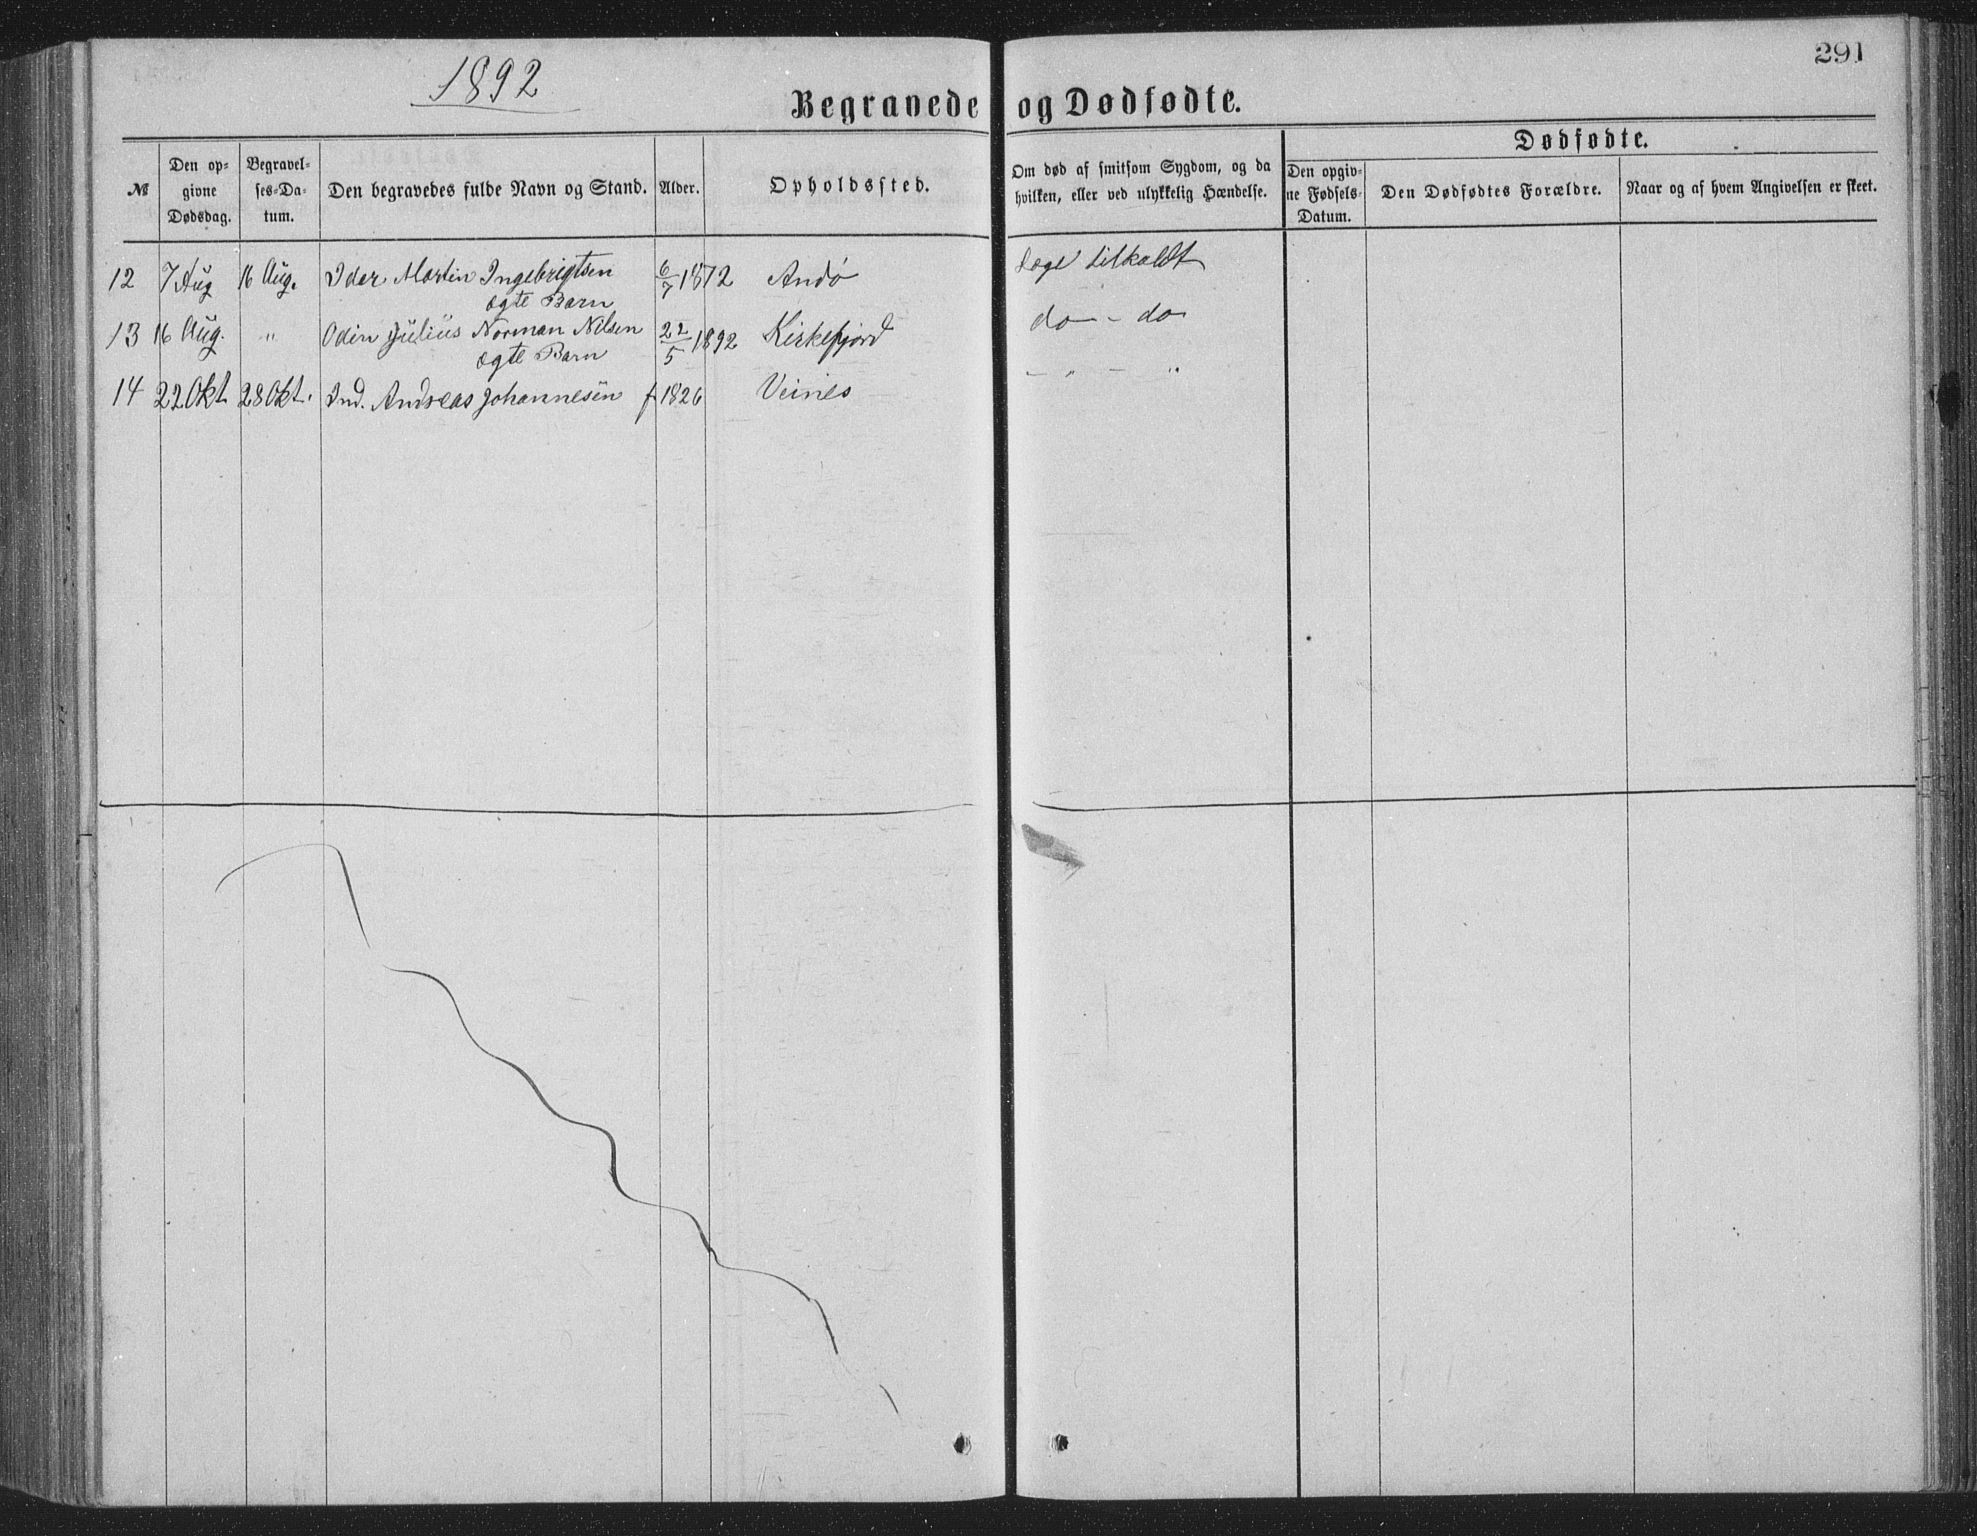 1892
291
Begravede og Dødfødte.
№
Den op-
givne
Dødsdag.
Begravel-
ses-Da-
tum.
Den begravedes fulde Navn og Stand.
Alder.
Opholdssted.
Om død af smitsom Sygdom, og da
hvilken, eller ved ulykkelig Hændelse.
Dødfødte.
Den opgiv-
ne Fødsels-
Datum.
Den Dødfødtes Forældre.
Naar og af hvem Angivelsen er skeet.
12 7 Aug 16 Aug. Idar Martin Ingebrigtsen 6/7 1872 Andø Læge tilkaldt
ægte Barn
13 16 Aug. " Odin Julius Norman Nilsen 22/5 1892 Kirkefjord do - do
ægte Barn
14 22 Okt 28 Okt. Ind. Andreas Johannesen f 1826 Veines - " - "